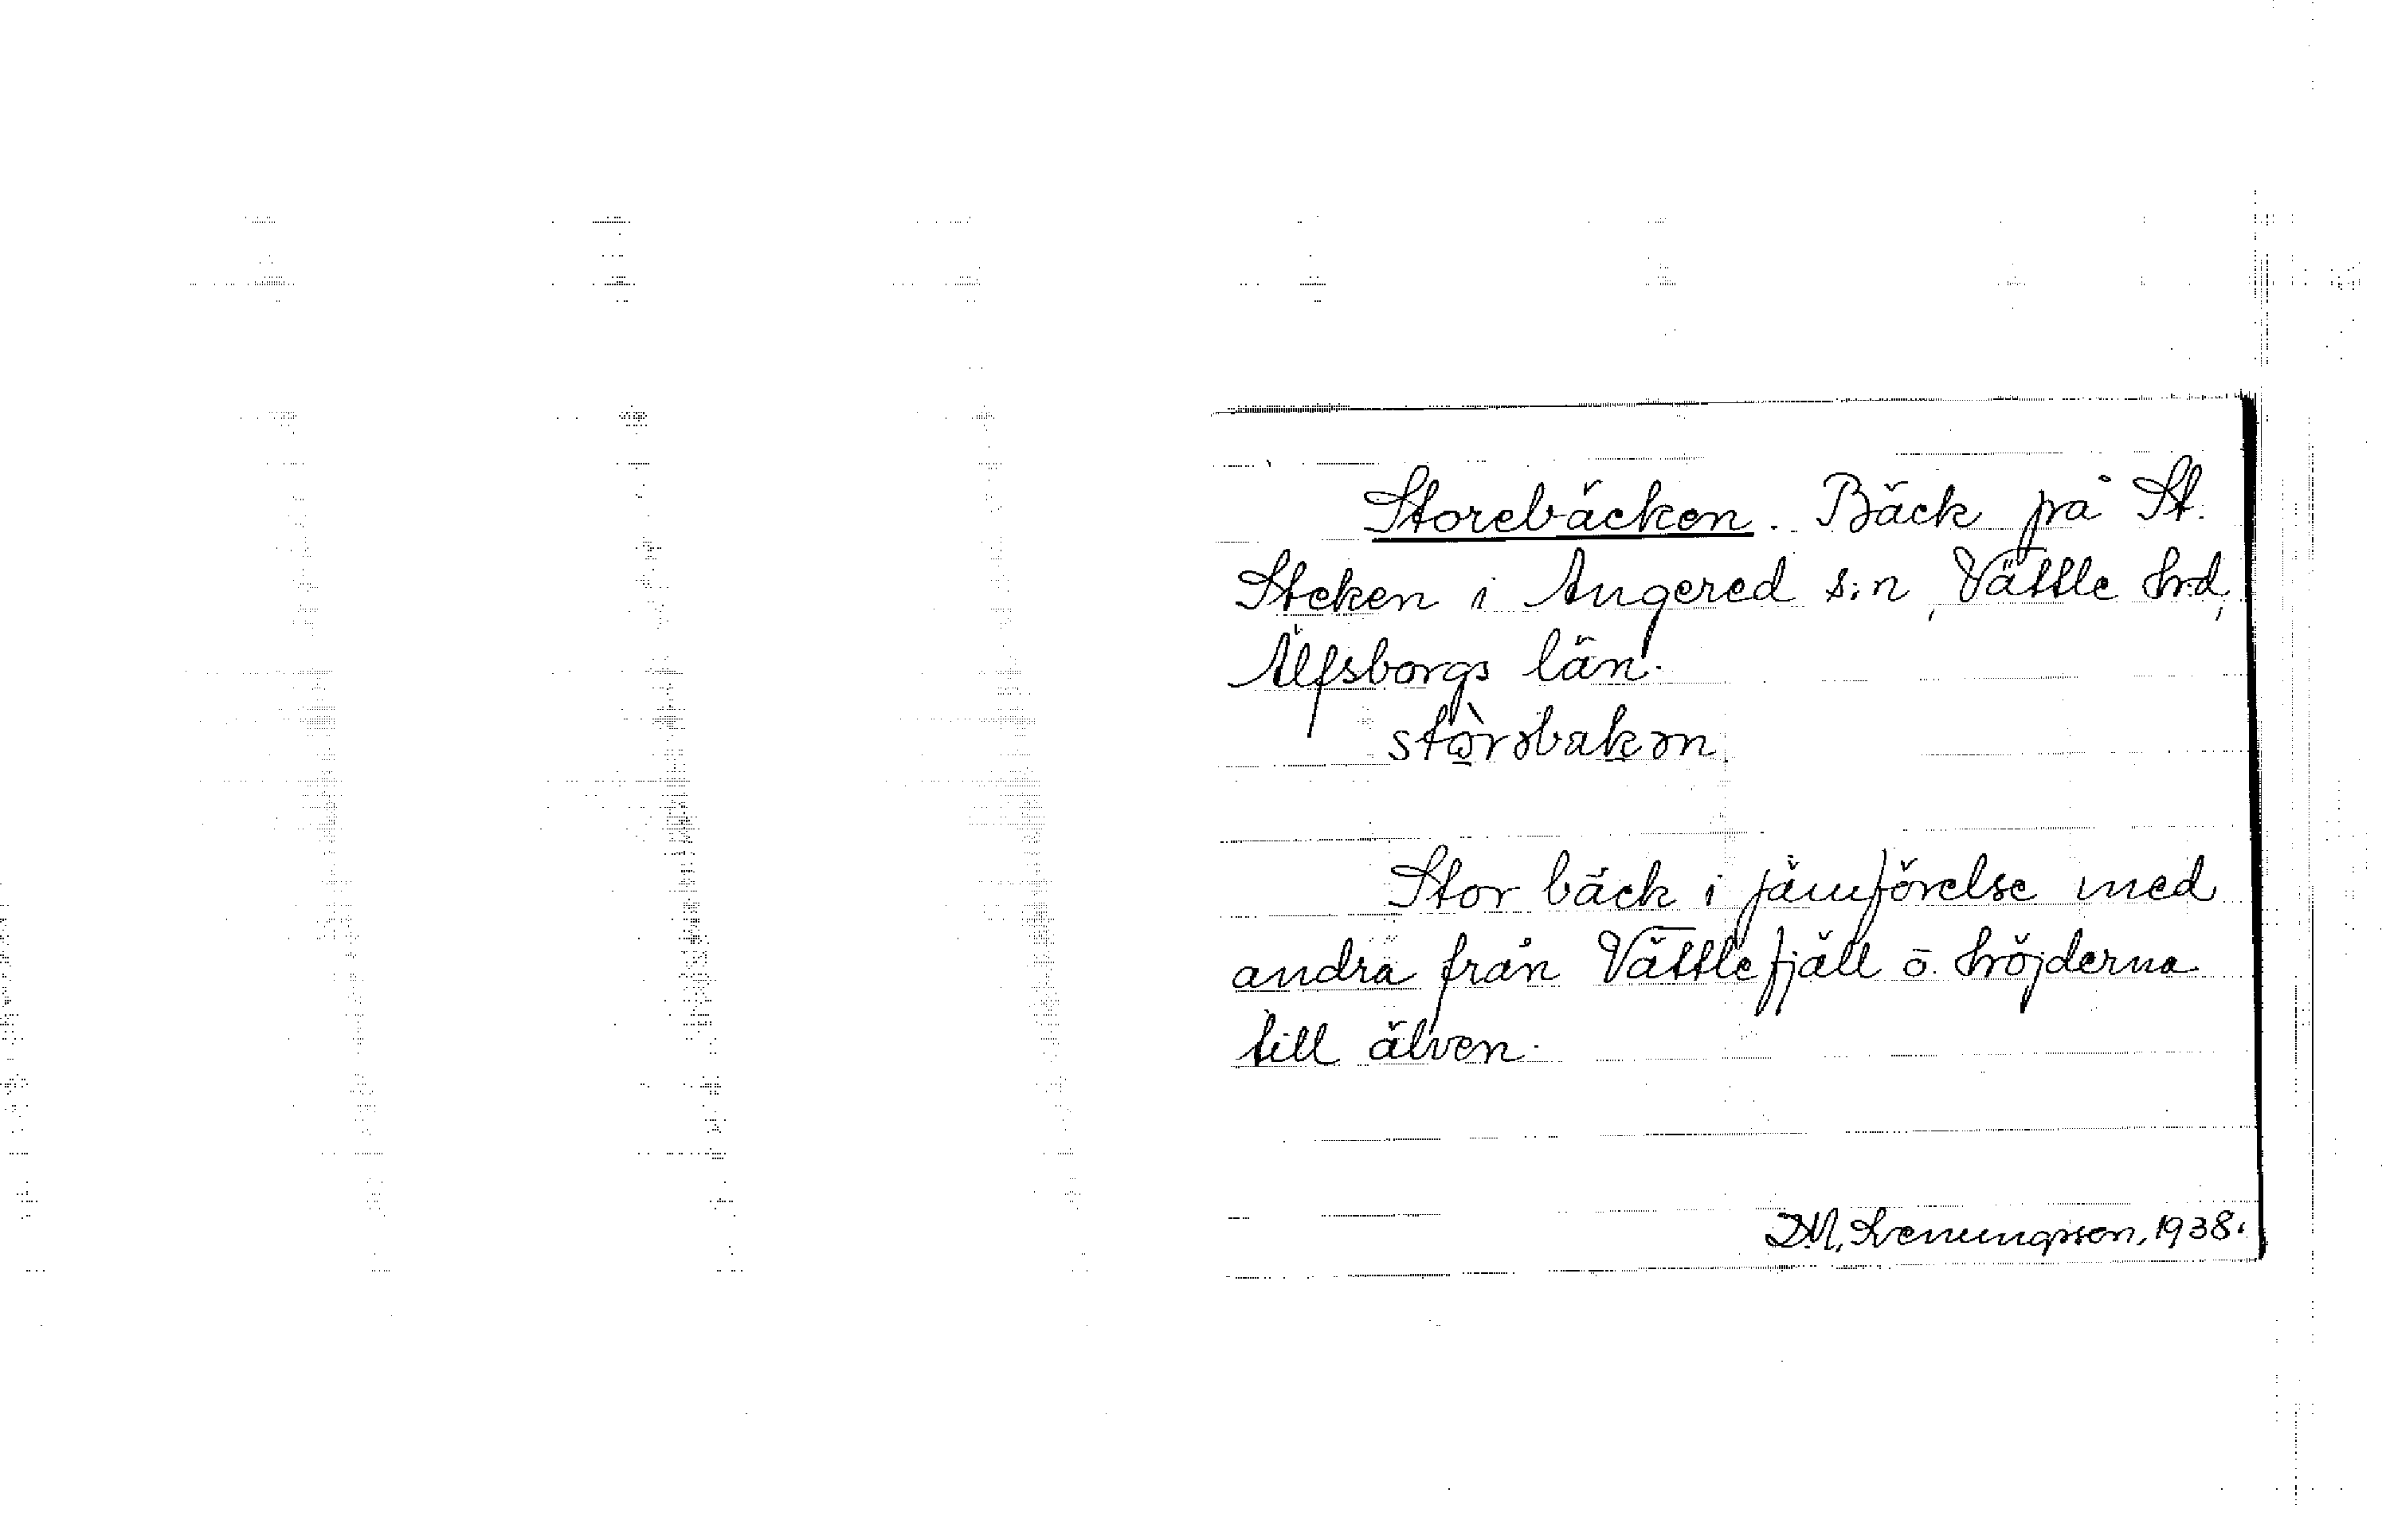 Storebäcken. Bäck på St.
Steken i Angered s:n, Vättle hrd,
Älfsborgs län.
stǫ̀rəbakən.
Stor bäck i jämförelse med
andra från Vättlefjäll o. höjderna
till älven.
1938.